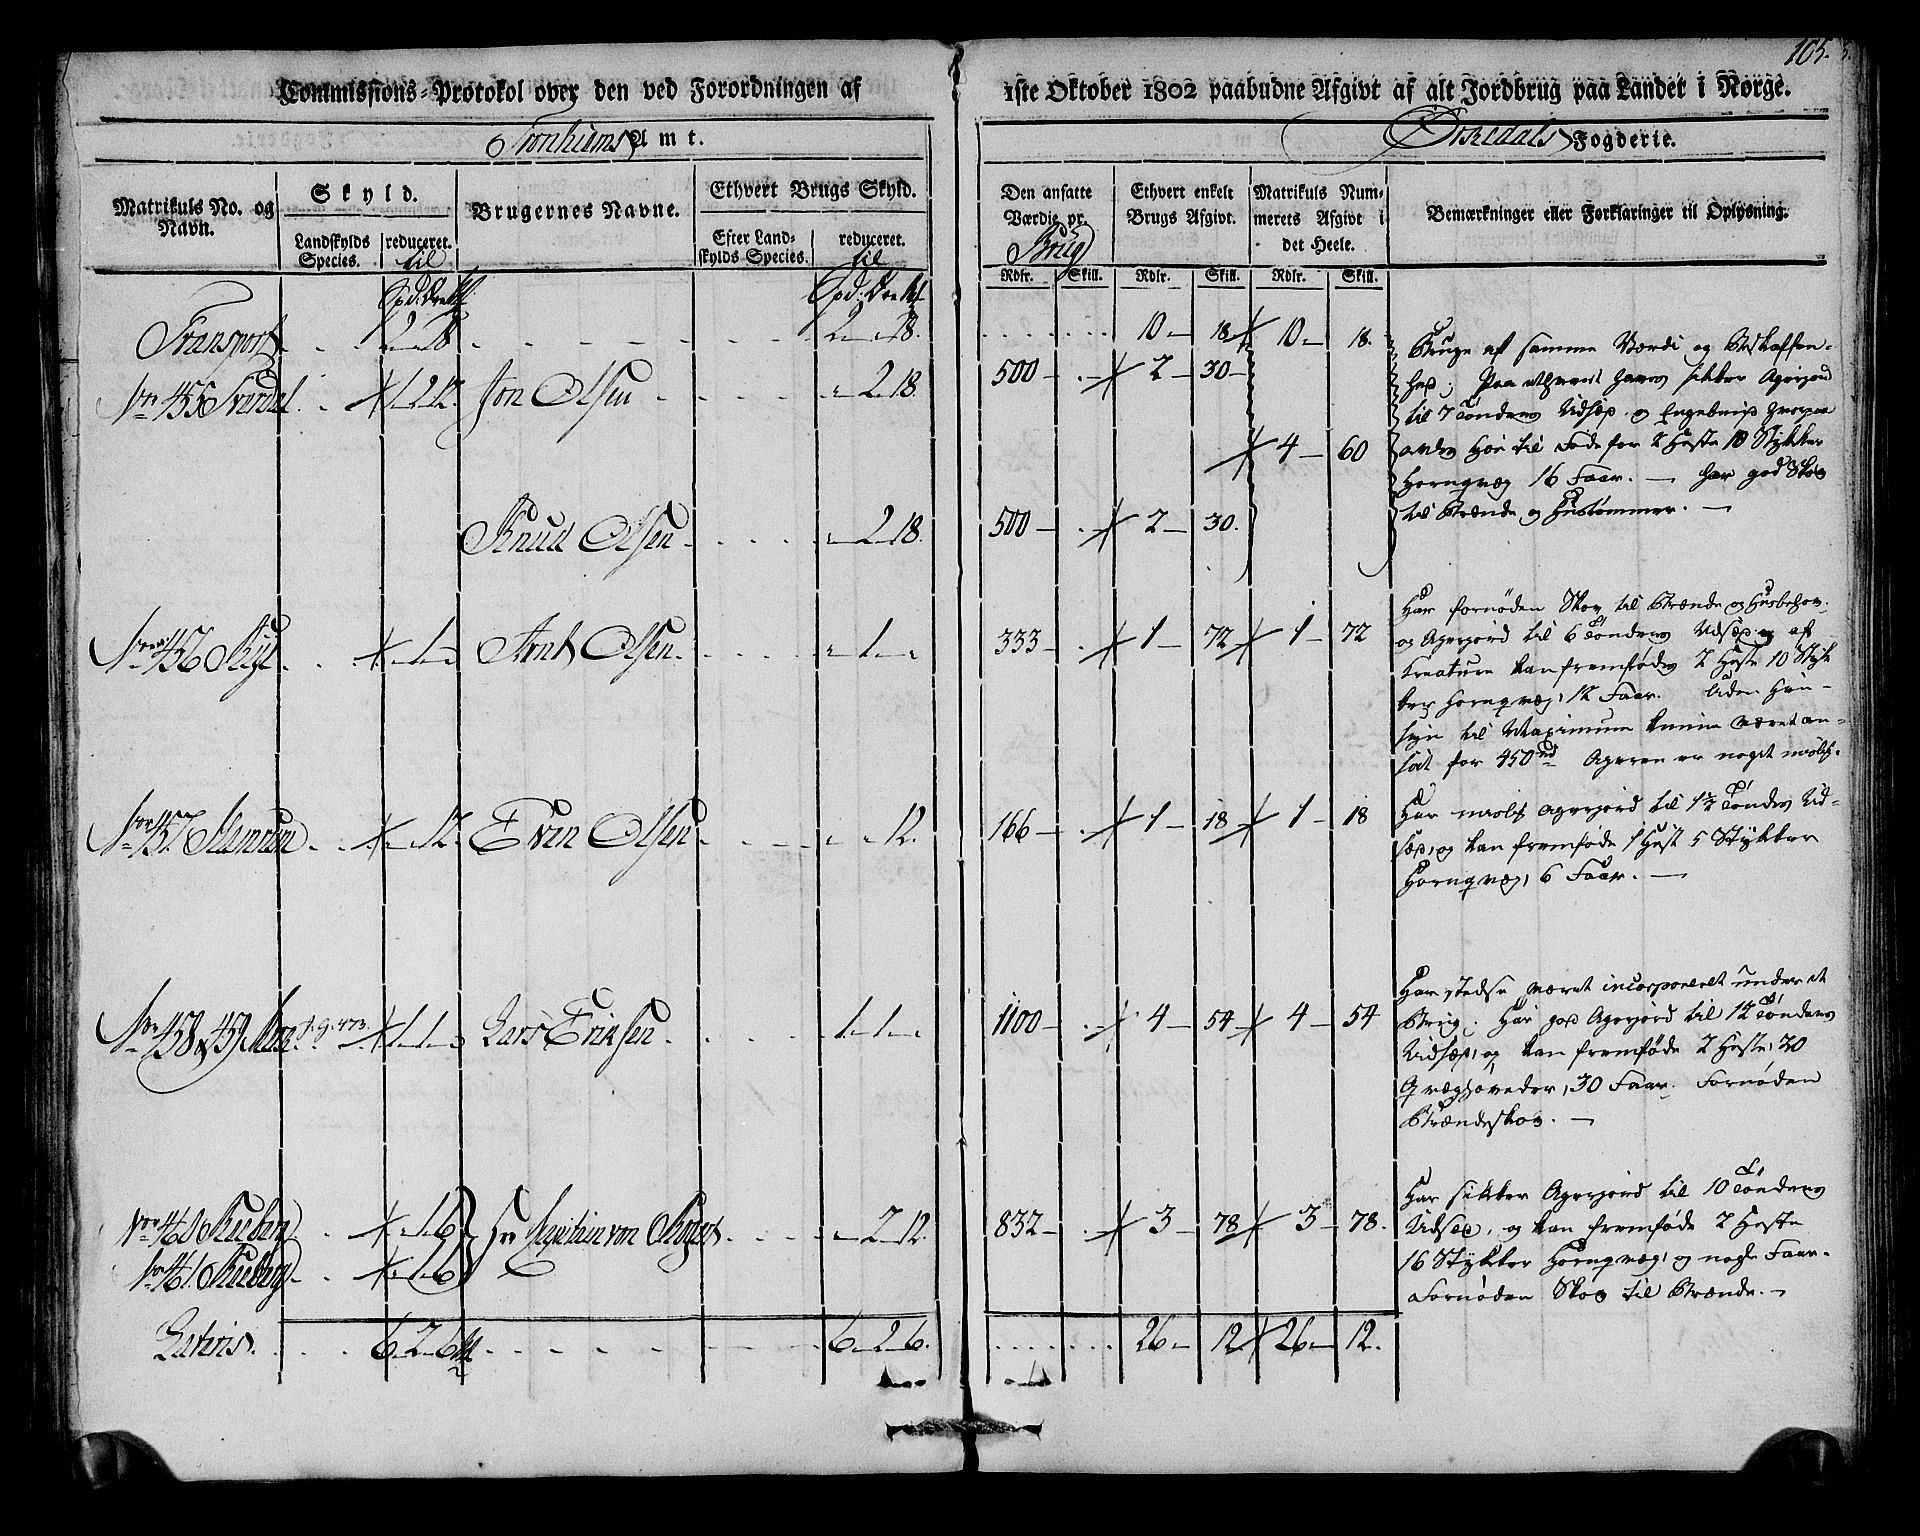 105.
Commissions-Protokol over den ved Forordningen af 1ste Oktober 1802 paabudne Afgivt af alt Jordbrug paa Landet i Norge.
Tronhiems Amt.
Orkedals Fogderie.
Matrikuls No. og Navn.
Skyld.
Landskylds Species.
reduceret.
til
Brugernes Navne.
Ethvert Brugs Skyld.
Efter Landskylds Species.
reduceret.
til
Den ansatte Værdie pr.
Brug
Ethvert enkelt Brugs Afgivt.
Matrikuls Nummerets Afgivt i det Heele.
Bemærkninger eller Forklaringer til Oplysning.
Rdlr. Skill. Rdlr. Skill. Rdlr. Skill.
Transport 2 - " - 18 2 - " - 18. 10 - 18 10 - 18.
No 455 1 - 2 - 12. Jon Olsen " - 2 - 18. 500 - 2 - 30 -
4 - 60
Knud Olsen " - 2 - 18. 500 - 2 - 30.
Bruge af samme Værdi og Beskaffen-
hed; Paa ethvert haves sikker Agerjord
til 7 Tønders Udsæd og Engebund hvorpaa
avles Høe til Føde for 2 Heste 10 Stykker
Hornqvæg 16 Faar. — har god Skov
til Brænde og Hustømmer. —
No 456 Rye " - 1 - " Arnt Olsen " - 1 - " 333 - 1 - 72 1 - 72
Har fornøden Skov til Brænde og Husbehov.
og Agerjord til 6 Tønders Udsæd og af
Kreature kan fremfødes 2 Heste 10 Styk
ker Hornqvæg, 12 Faar. Uden Hen-
syn til Maximum kunne været an-
sat for 450 rd Ageren er noget
No 457 " - " - 12. Even Olsen " - " 12. 166 - 1 - 18 1 - 18
Har Agerjord til 1½ Tøndes Ud-
sæd, og kan fremføde 1 Hest 5 Stykker
Hornqvæg, 6 Faar. —
No 458 & 459 Moe 1 - 1 - " Lars Eriksen 1 - 1 - " 1100 - 4 - 54 4 - 54
Har stedse været incorporeret under et
Brug. Har god Agerjord til 12 Tønders
Udsæd, og kan fremføde 2 Heste, 20
Qvæghøveder, 30 Faar. Fornøden
Brændeskov. —
No 460 " - 1 - 6 Hr Capitain von " - 2 - 12. 832 - 3 - 78 3 - 78.
No 461 " - 1 - 6
Har sikker Agerjord til 10 Tønders
Udsæd, og kan fremføde 2 Heste
16 Stykker Hornqvæg, og nogle Faar.
Fornøden Skov til Brænde. —
Lateris. 6 - 2 - 6 6 - 2 - 6. 26 - 12 26 - 12.